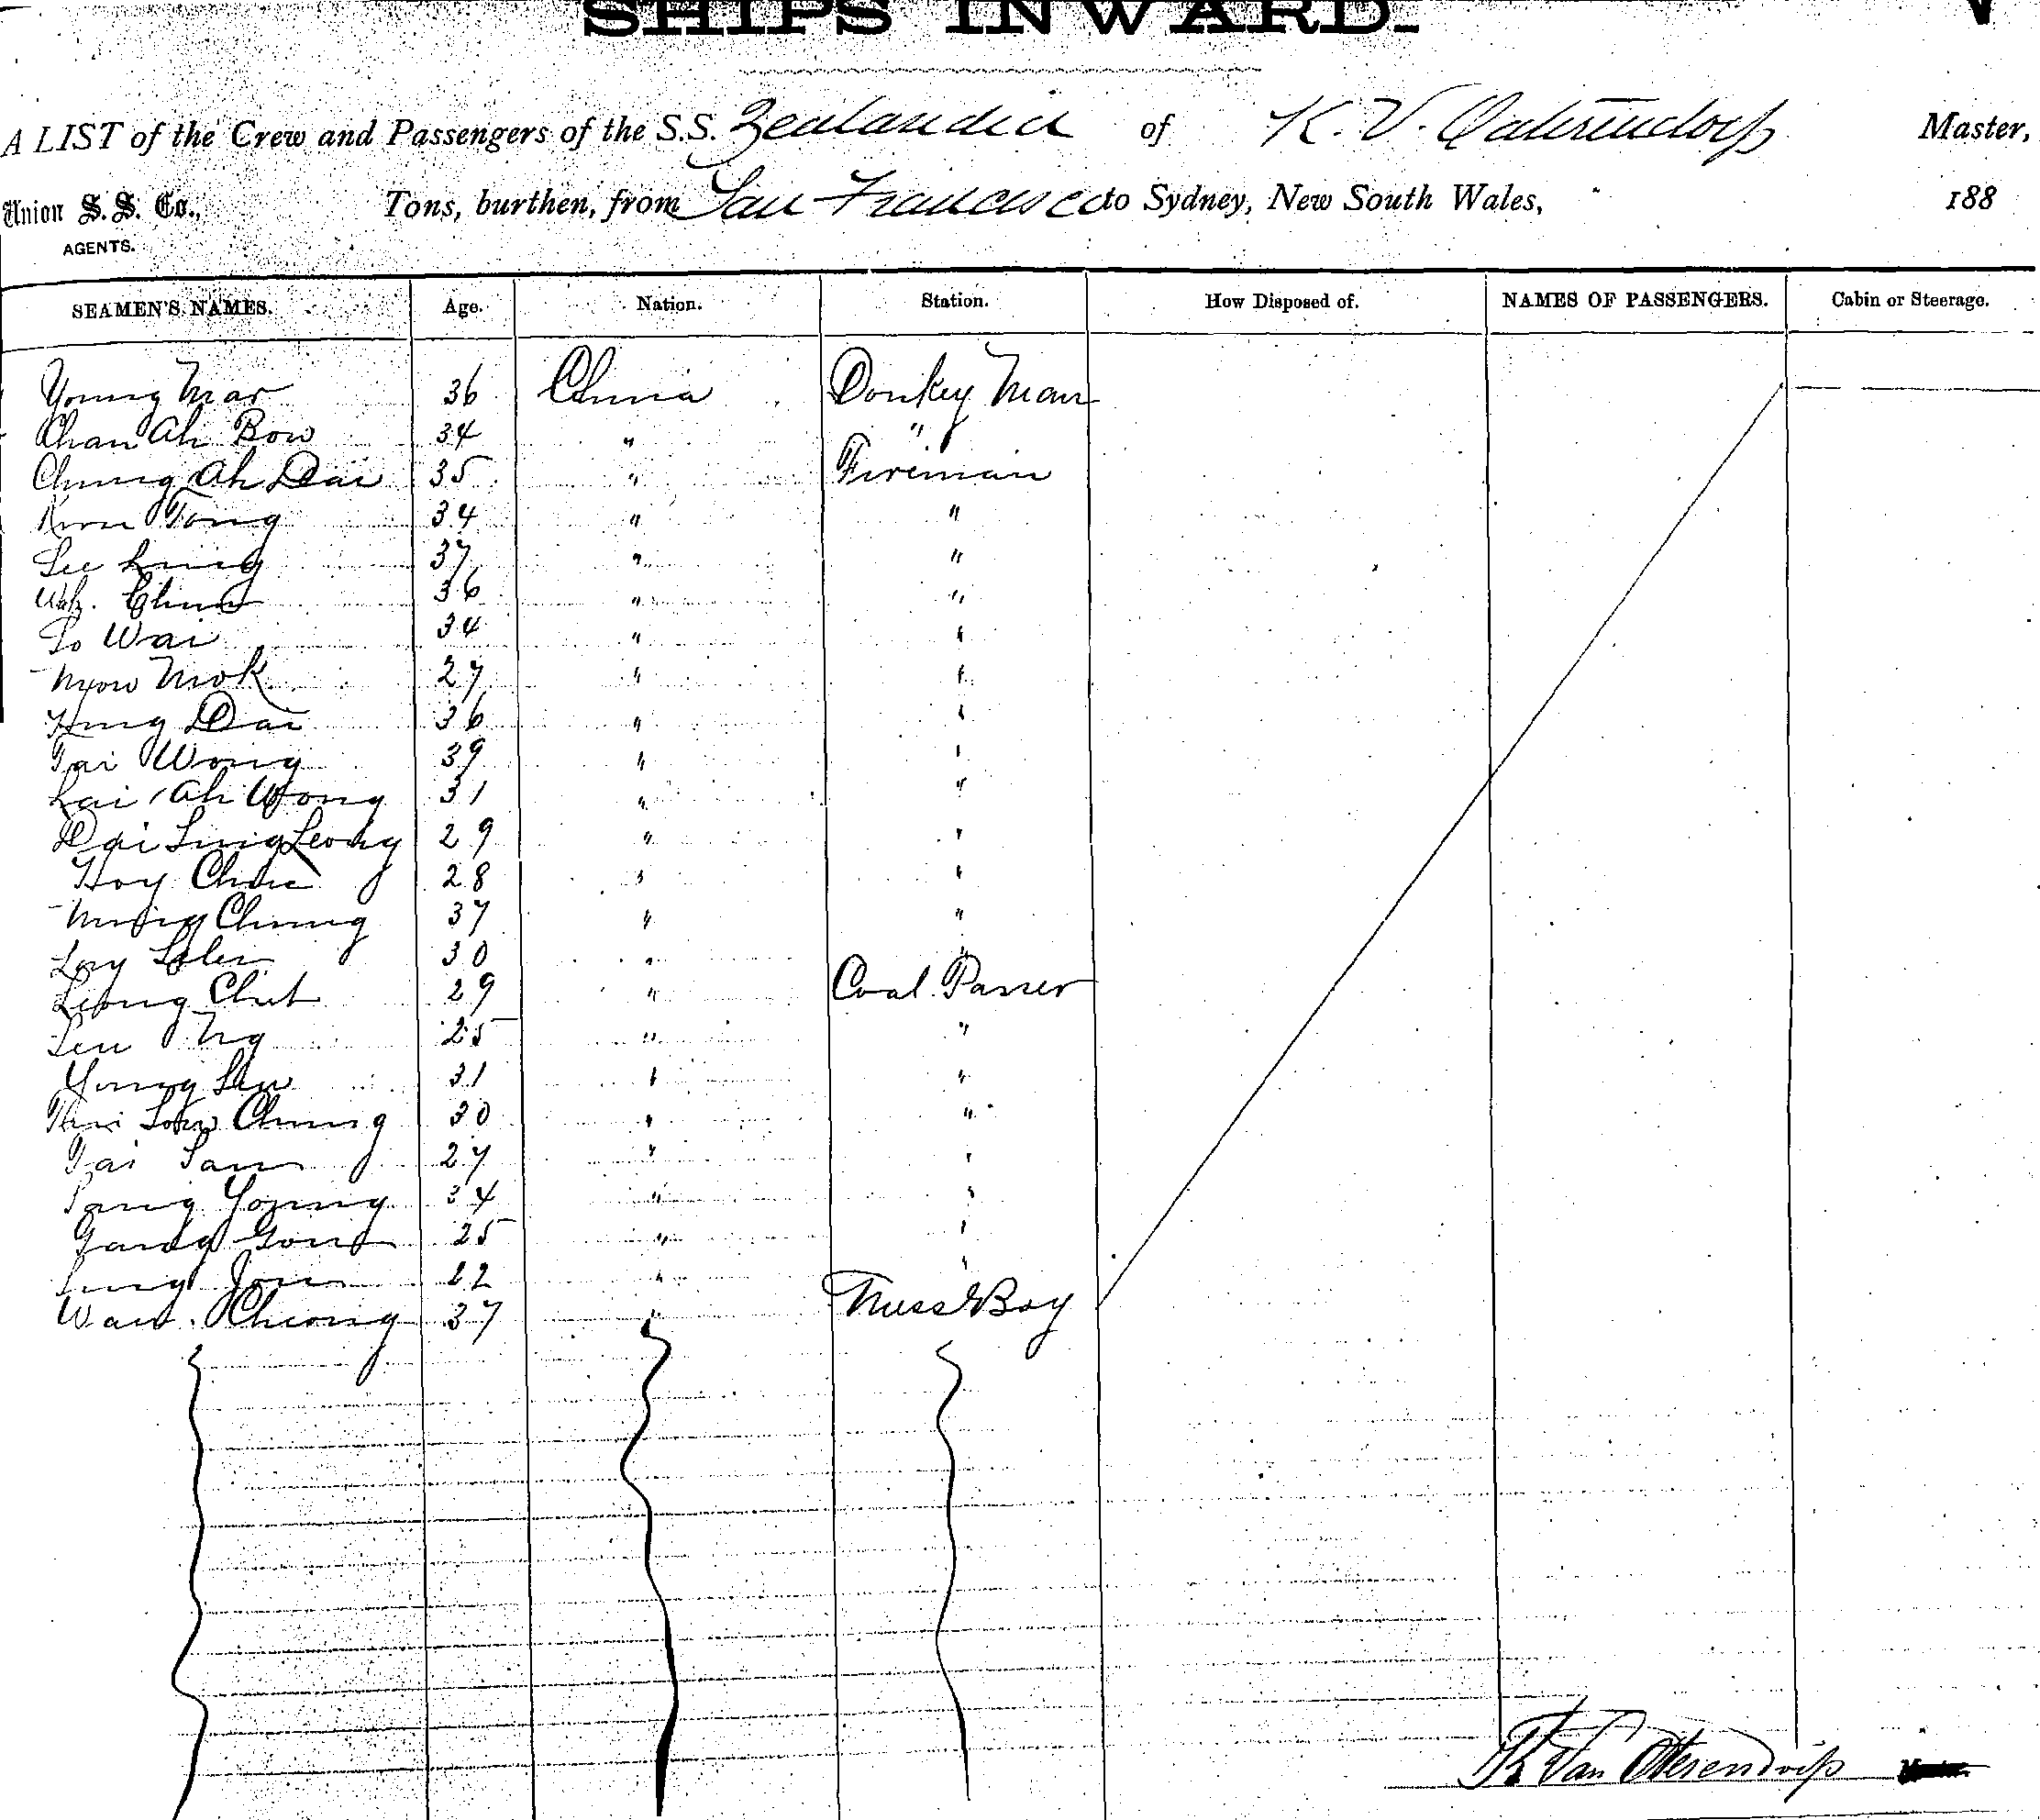 SHIPS INWARD.
A LIST of the Crew and Passengers of the S.S. Zealandia of K. V. Oaterendorp Master,
Union S. S. Co., Tons, burthen, from San Francisco to Sydney, New South Wales, 188
AGENTS.
SEAMEN'S NAMES. Age. Nation. Station. How Disposed of. NAMES OF PASSENGERS. Cabin or Steerage.
Young Mar 36 China Donkey Man
Chan Ah Bow 34 " "
Chung Ah Dai 35 " Fireman
Tong 34 " "
See Lung 37 " "
36 " "
To Wai 34 " "
Mok 27 " "
Hing Dai 36 " "
Tai Wong 39 " "
Lai Ah Wong 31 " "
Dai Sing Leong 29 " "
Hoy Chow 28 " "
Chung 37 " "
Loy 30 " "
Leong Chut 29 " Coal Passer
Leu Ng 25 " "
Young 31 " "
Chung 30 " "
Tai Sam 27 " "
Young 34 " "
25 " "
22 " "
Wan Cheong 37 " Mess Boy
K Van Oterendorp